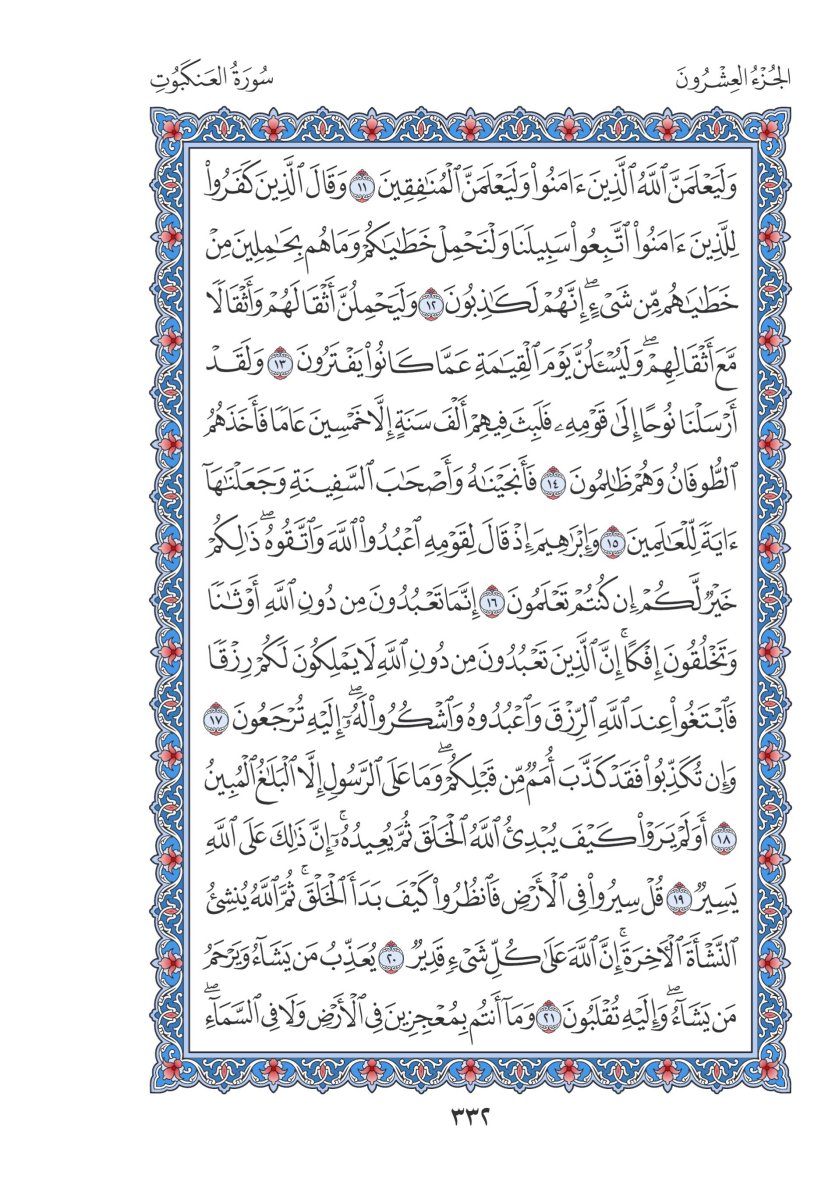 الجُزْءُ العِشْرُونَ
سُورَةُ العَنكَبُوتِ
وَلَيَعْلَمَنَّ ٱللَّهُ ٱلَّذِينَ ءَامَنُوا۟ وَلَيَعْلَمَنَّ ٱلْمُنَٰفِقِينَ ١١ وَقَالَ ٱلَّذِينَ كَفَرُوا۟
لِلَّذِينَ ءَامَنُوا۟ ٱتَّبِعُوا۟ سَبِيلَنَا وَلْنَحْمِلْ خَطَٰيَٰكُمْ وَمَا هُم بِحَٰمِلِينَ مِنْ
خَطَٰيَٰهُم مِّن شَىْءٍ ۖ إِنَّهُمْ لَكَٰذِبُونَ ١٢ وَلَيَحْمِلُنَّ أَثْقَالَهُمْ وَأَثْقَالًا
مَّعَ أَثْقَالِهِمْ ۖ وَلَيُسْـَٔلُنَّ يَوْمَ ٱلْقِيَٰمَةِ عَمَّا كَانُوا۟ يَفْتَرُونَ ١٣ وَلَقَدْ
أَرْسَلْنَا نُوحًا إِلَىٰ قَوْمِهِۦ فَلَبِثَ فِيهِمْ أَلْفَ سَنَةٍ إِلَّا خَمْسِينَ عَامًا فَأَخَذَهُمُ
ٱلطُّوفَانُ وَهُمْ ظَٰلِمُونَ ١٤ فَأَنجَيْنَٰهُ وَأَصْحَٰبَ ٱلسَّفِينَةِ وَجَعَلْنَٰهَآ
ءَايَةً لِّلْعَٰلَمِينَ ١٥ وَإِبْرَٰهِيمَ إِذْ قَالَ لِقَوْمِهِ ٱعْبُدُوا۟ ٱللَّهَ وَٱتَّقُوهُ ۖ ذَٰلِكُمْ
خَيْرٌ لَّكُمْ إِن كُنتُمْ تَعْلَمُونَ ١٦ إِنَّمَا تَعْبُدُونَ مِن دُونِ ٱللَّهِ أَوْثَٰنًا
وَتَخْلُقُونَ إِفْكًا ۚ إِنَّ ٱلَّذِينَ تَعْبُدُونَ مِن دُونِ ٱللَّهِ لَا يَمْلِكُونَ لَكُمْ رِزْقًا
فَٱبْتَغُوا۟ عِندَ ٱللَّهِ ٱلرِّزْقَ وَٱعْبُدُوهُ وَٱشْكُرُوا۟ لَهُۥٓ ۖ إِلَيْهِ تُرْجَعُونَ ١٧
وَإِن تُكَذِّبُوا۟ فَقَدْ كَذَّبَ أُمَمٌ مِّن قَبْلِكُمْ ۖ وَمَا عَلَى ٱلرَّسُولِ إِلَّا ٱلْبَلَٰغُ ٱلْمُبِينُ
١٨ أَوَلَمْ يَرَوْا۟ كَيْفَ يُبْدِئُ ٱللَّهُ ٱلْخَلْقَ ثُمَّ يُعِيدُهُۥٓ ۚ إِنَّ ذَٰلِكَ عَلَى ٱللَّهِ
يَسِيرٌ ١٩ قُلْ سِيرُوا۟ فِى ٱلْأَرْضِ فَٱنظُرُوا۟ كَيْفَ بَدَأَ ٱلْخَلْقَ ۚ ثُمَّ ٱللَّهُ يُنشِئُ
ٱلنَّشْأَةَ ٱلْءَاخِرَةَ ۚ إِنَّ ٱللَّهَ عَلَىٰ كُلِّ شَىْءٍ قَدِيرٌ ٢٠ يُعَذِّبُ مَن يَشَآءُ وَيَرْحَمُ
مَن يَشَآءُ ۖ وَإِلَيْهِ تُقْلَبُونَ ٢١ وَمَآ أَنتُم بِمُعْجِزِينَ فِى ٱلْأَرْضِ وَلَا فِى ٱلسَّمَآءِ ۖ
٣٣٢